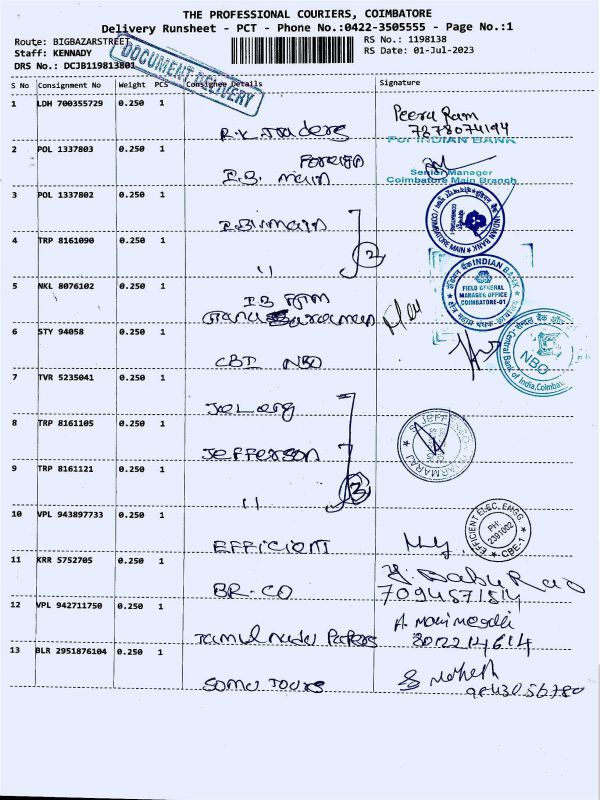 THE PROFESSIONAL COURIERS, COIMBATORE
Delivery Runsheet - PCT - Phone No.:0422-3505555 - Page No.:1
Route: BIGBAZARSTREET
RS No.: 1198138
Staff: KENNADY
RS Date: 01-Jul-2023
DRS No.: DCJB119813801
DOCUMENT DELIVERY
S No Consignment No Weight PCS Consignee Details Signature
1 LDH 700355729 0.250 1
R.K. Traders
Peera Ram
7878074194
For INDIAN BANK
2 POL 1337803 0.250 1
Foreign
I.B. main
Senior Manager
Coimbatore Main Branch
3 POL 1337802 0.250 1
I.B. main
COIMBATORE MAIN
INDIAN BANK
4 TRP 8161090 0.250 1
11
2
INDIAN BANK
FIELD GENERAL
MANAGER OFFICE
COIMBATORE-01
5 NKL 8076102 0.250 1
I.B
6 STY 94058 0.250 1
CBI NBO
NBO
Central Bank of India, Coimbatore
7 TVR 5235041 0.250 1
8 TRP 8161105 0.250 1
Jefferson
9 TRP 8161121 0.250 1
11
3
10 VPL 943897733 0.250 1
Efficient
EFFICIENT ELEC. ENGG.
PH:
2391002
CBE-1
11 KRR 5752705 0.250 1
BR. CO
Babu Rao
7094571514
12 VPL 942711750 0.250 1
Tamil Nadu Papers
13 BLR 2951876104 0.250 1
Somu Tours
9843056780